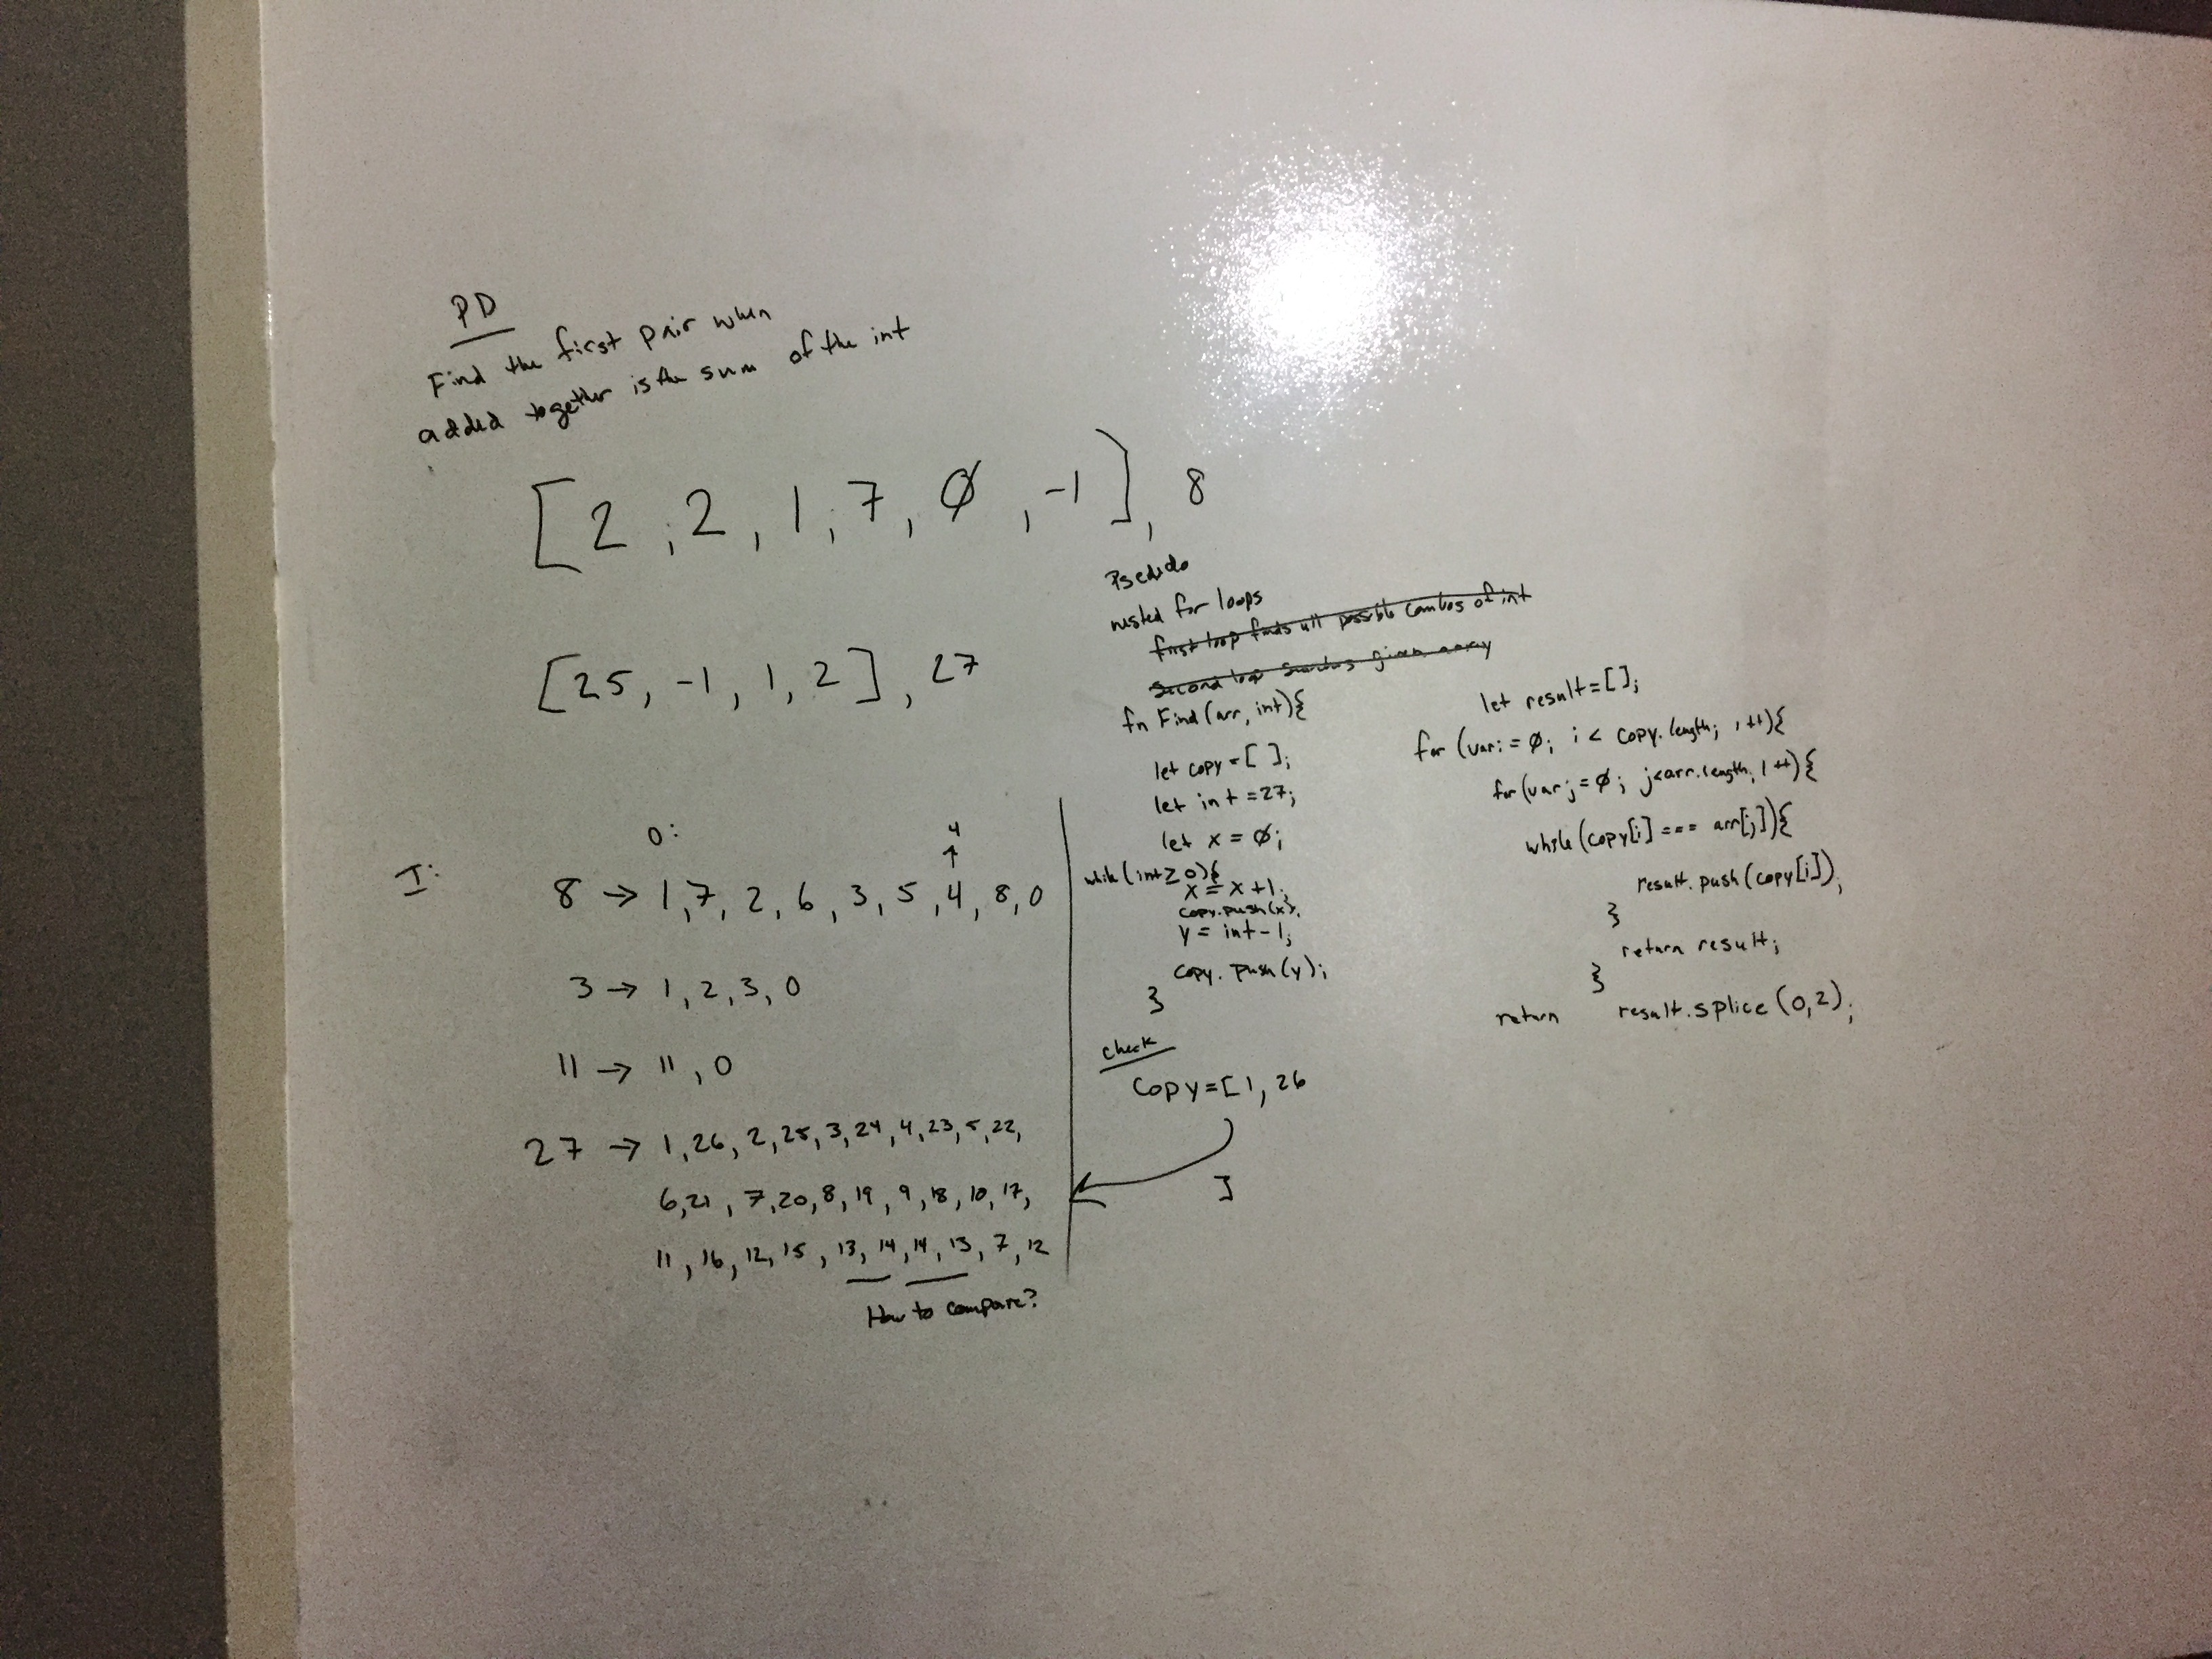 PD
Find the first pair when
added together is the sum of the int
[2, 2, 1, 7, 0, -1], 8
[25, -1, 1, 2], 27
I:
O:
4
↑
8 → 1, 7, 2, 6, 3, 5, 4, 8, 0
3 → 1, 2, 3, 0
11 → 11, 0
27 → 1, 26, 2, 25, 3, 24, 4, 23, 5, 22,
6, 21, 7, 20, 8, 19, 9, 18, 10, 17,
11, 16, 12, 15, 13, 14, 14, 13, 7, 12
How to compare?
Pseudo
nested for loops
first loop finds all possible combos of int
second loop searches given array
fn Find(arr, int){
let copy = [ ];
let int = 27;
let x = 0;
while(int ≥ 0){
x = x + 1;
copy.push(x);
y = int - 1;
copy.push(y);
}
check
copy = [1, 26
]
let result = [];
for (var i = 0; i < copy.length; i++){
for (var j = 0; j < arr.length; j++){
while (copy[i] === arr[j]){
result.push(copy[i]);
}
return result;
}
return result.splice(0,2);